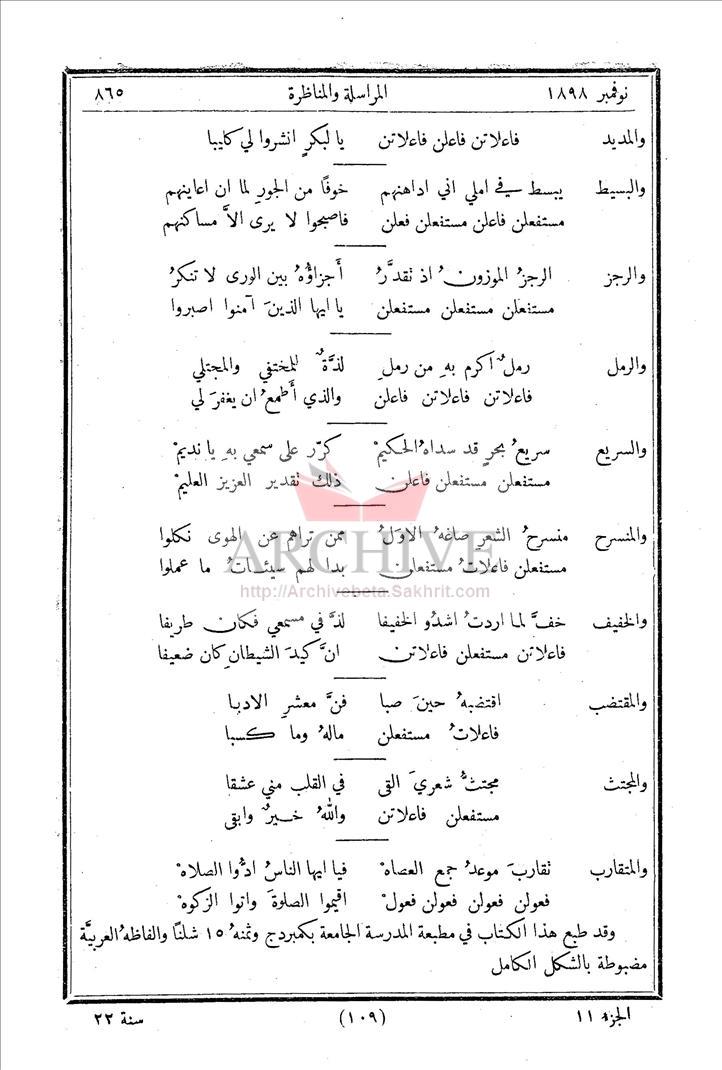 نوفمبر ١٨٩٨ المراسلة والمناظرة ٨٦٥
والمديد فاعلاتن فاعلن فاعلاتن يا لبكرٍ انشروا لي كليبا
والبسيط يبسط في املي اني اداهنهم خوفًا من الجورِ لما ان اعاينهم
مستفعلن فاعلن مستفعلن فعلن فاصبحوا لا يرى الاَّ مساكنهم
والرجز الرجزُ الموزونُ اذ تقدَّرُ أجزاؤهُ بين الورى لا تنكرُ
مستفعلن مستفعلن مستفعلن يا ايها الذينَ آمنوا اصبروا
والرمل رملٌ اكرم بهِ من رملِ لذَّةٌ للمختفي والمجتلي
فاعلاتن فاعلاتن فاعلن والذي أَطمعُ ان يغفرَ لي
والسريع سريعُ بحرٍ قد سداهُ الحكيمْ كرّر على سمعي بهِ يا نديمْ
مستفعلن مستفعلن فاعلن ذلك تقدير العزيز العليمْ
والمنسرح منسرحُ الشعرِ صاغهُ الاولُ ممن تراهم عن الهوى نكلوا
مستفعلن فاعلاتُ مستفعلن بدا لهم سيئاتُ ما عملوا
ARCHIVE
http://Archivebeta.Sakhrit.com
والخفيف خفَّ لما اردتُ اشدُو الخفيفا لذَّ في مسمعي فكان طريفا
فاعلاتن مستفعلن فاعلاتن انَّ كيدَ الشيطانِ كان ضعيفا
والمقتضب اقتضبهُ حينَ صبا فنَّ معشرِ الادبا
فاعلاتُ مستفعلن مالهُ وما كسبا
والمجتث مجتثُّ شعريَ القى في القلب مني عشقا
مستفعلن فاعلاتن واللهُ خيرٌ وابقى
والمتقارب تقاربَ موعدُ جمع العصاهْ فيا ايها الناسُ ادُّوا الصلاهْ
فعولن فعولن فعولن فعولْ اقيموا الصلوةَ واتوا الزكوهْ
وقد طبع هذا الكتاب في مطبعة المدرسة الجامعة بكمبردج وثمنهُ ١٥ شلنًا والفاظهُ العربيَّة
مضبوطة بالشكل الكامل
الجزء ١١ (١٠٩) سنة ٢٢